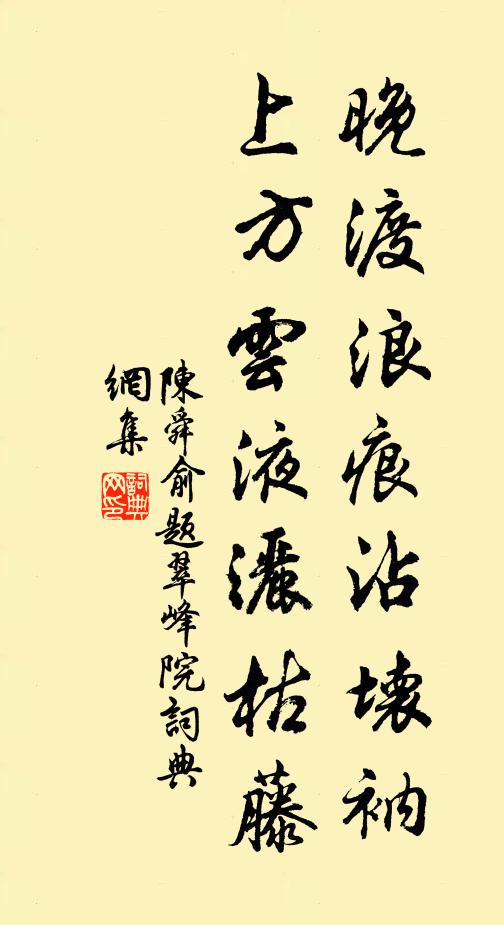 晚渡浪痕沾壞衲
上方雲液灑枯藤
陳舜俞題翠峰院詞典
網集
詞典網印